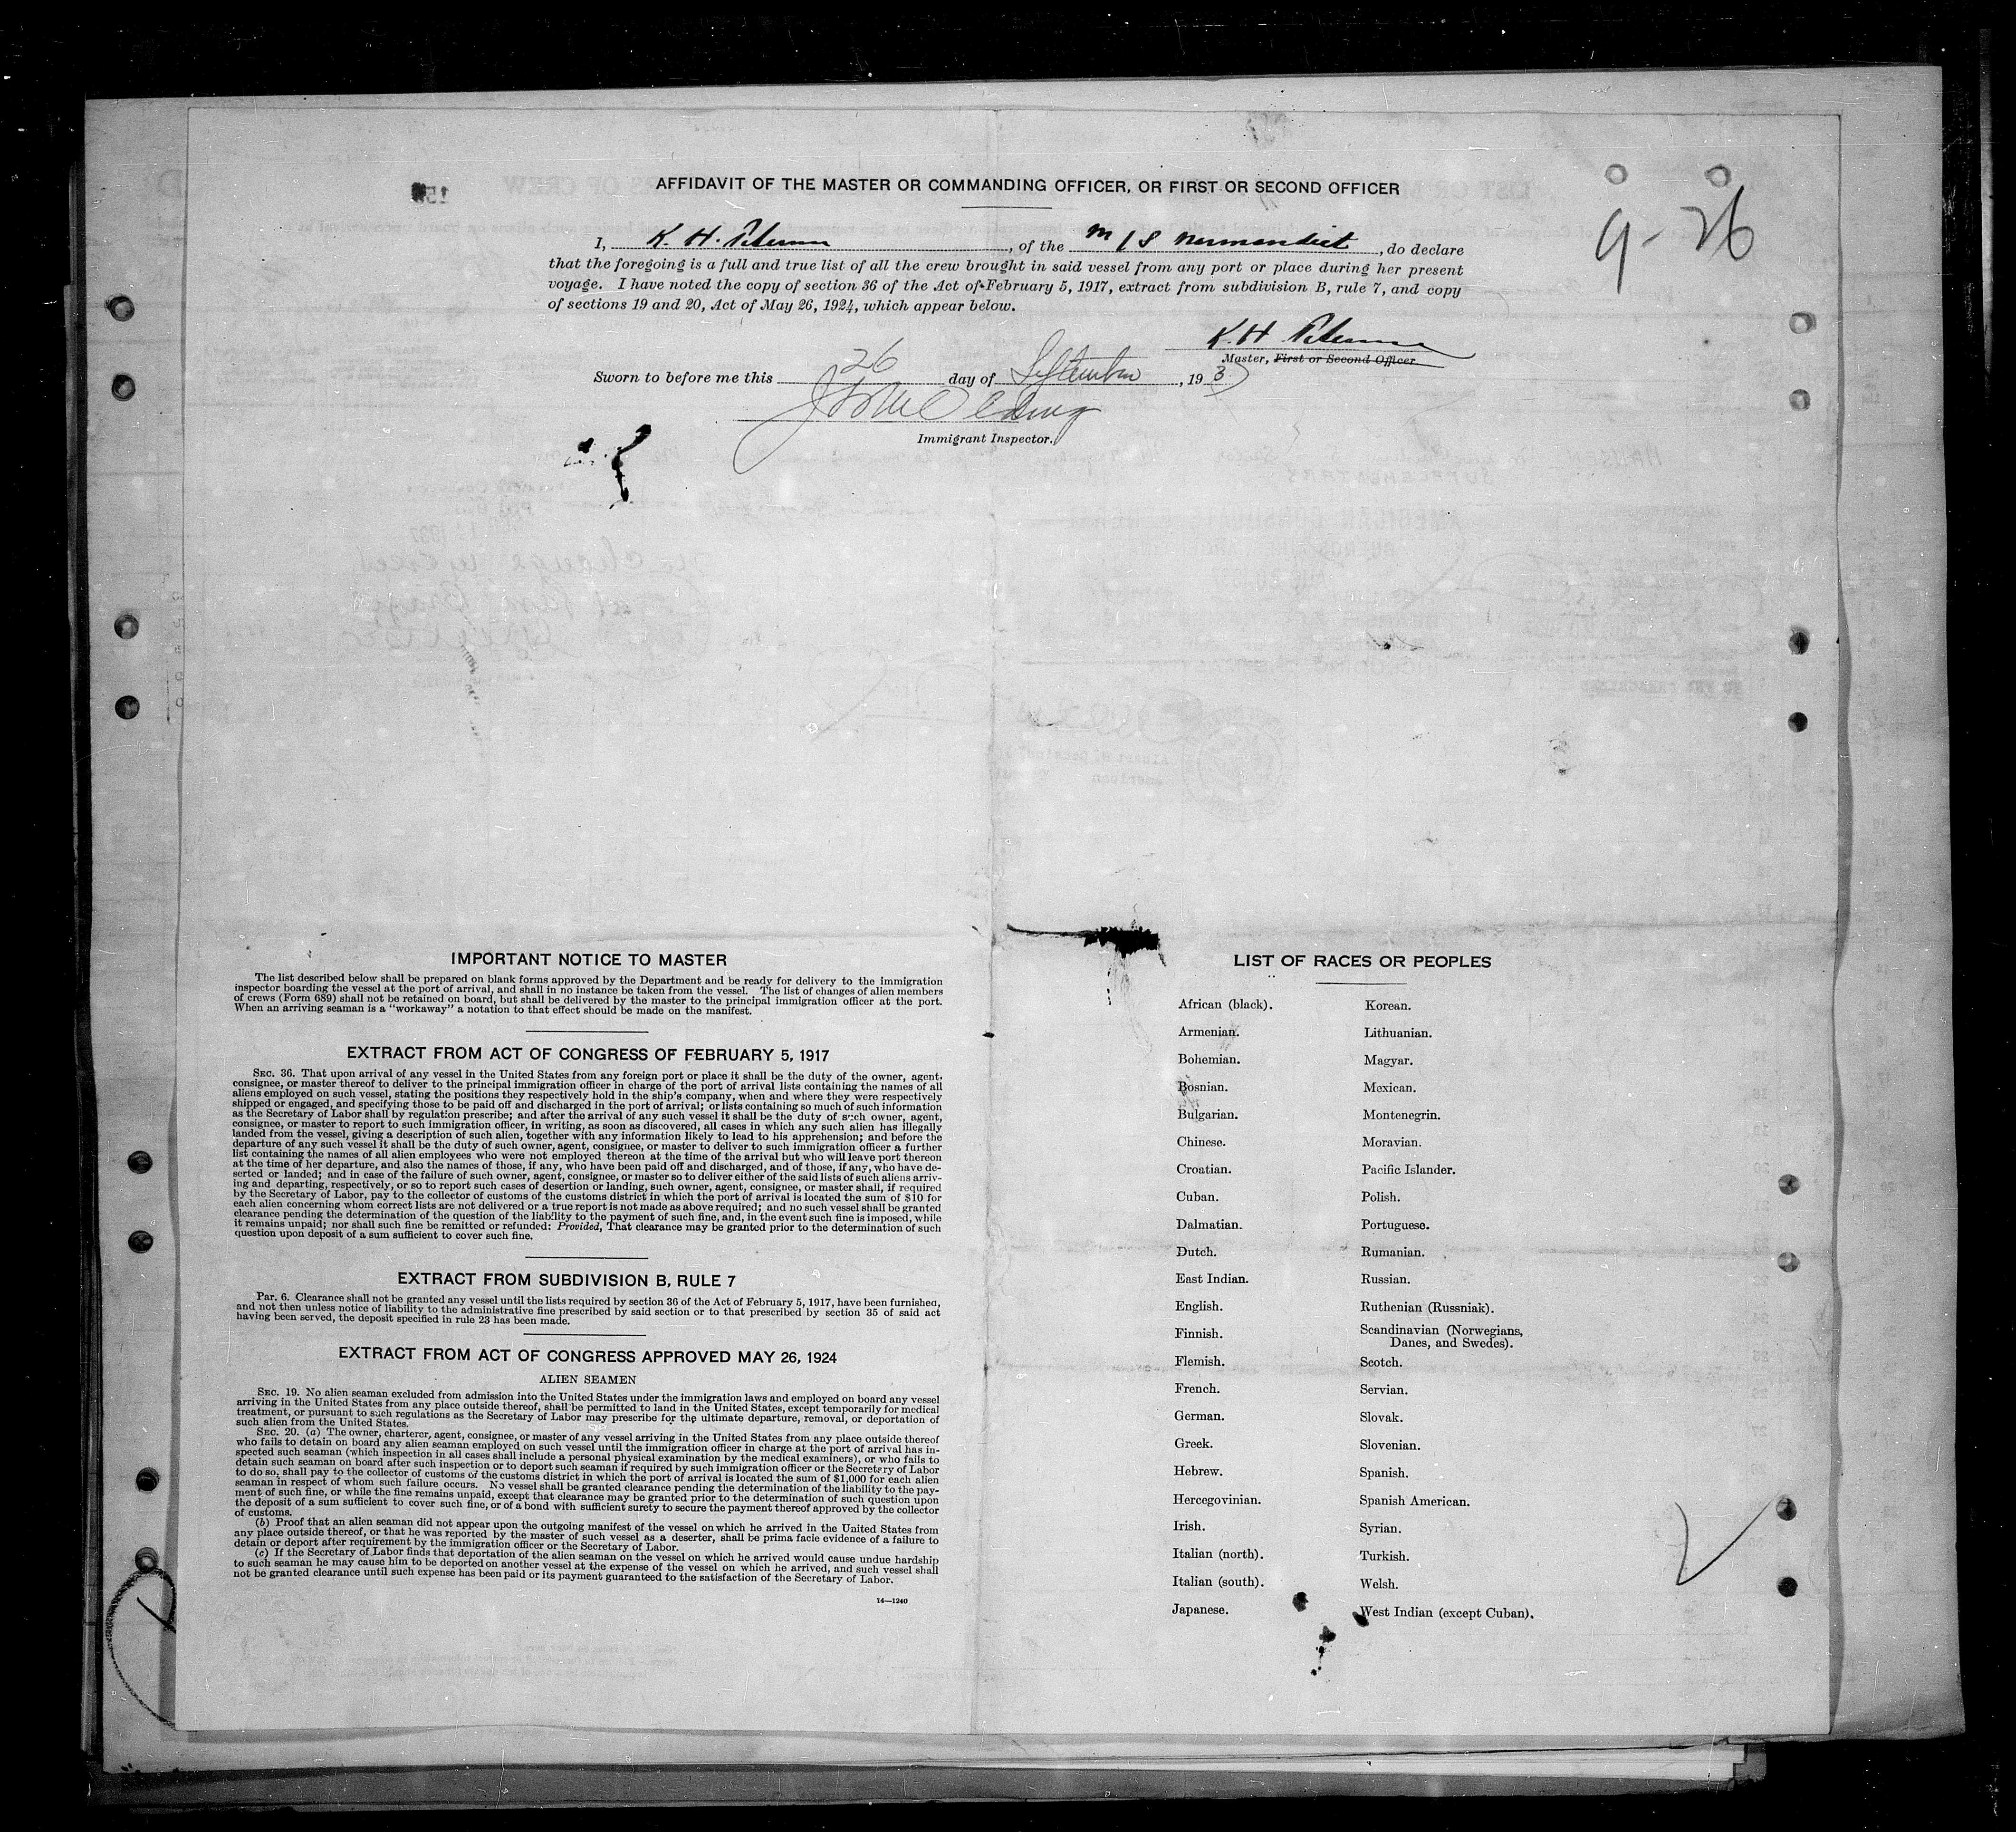 AFFIDAVIT OF THE MASTER OR COMMANDING OFFICER, OR FIRST OR SECOND OFFICER
9-26
I, K. H. , of the M/S , do declare
that the foregoing is a full and true list of all the crew brought in said vessel from any port or place during her present
voyage. I have noted the copy of section 36 of the Act of February 5, 1917, extract from subdivision B, rule 7, and copy
of sections 19 and 20, Act of May 26, 1924, which appear below.
K. H.
Master, First or Second Officer
Sworn to before me this 26 day of September, 193
Immigrant Inspector.
IMPORTANT NOTICE TO MASTER
The list described below shall be prepared on blank forms approved by the Department and be ready for delivery to the immigration
inspector boarding the vessel at the port of arrival, and shall in no instance be taken from the vessel. The list of changes of alien members
of crews (Form 689) shall not be retained on board, but shall be delivered by the master to the principal immigration officer at the port.
When an arriving seaman is a "workaway" a notation to that effect should be made on the manifest.
EXTRACT FROM ACT OF CONGRESS OF FEBRUARY 5, 1917
SEC. 36. That upon arrival of any vessel in the United States from any foreign port or place it shall be the duty of the owner, agent,
consignee, or master thereof to deliver to the principal immigration officer in charge of the port of arrival lists containing the names of all
aliens employed on such vessel, stating the positions they respectively hold in the ship's company, when and where they were respectively
shipped or engaged, and specifying those to be paid off and discharged in the port of arrival; or lists containing so much of such information
as the Secretary of Labor shall by regulation prescribe; and after the arrival of any such vessel it shall be the duty of such owner, agent,
consignee, or master to report to such immigration officer, in writing, as soon as discovered, all cases in which any such alien has illegally
landed from the vessel, giving a description of such alien, together with any information likely to lead to his apprehension; and before the
departure of any such vessel it shall be the duty of such owner, agent, consignee, or master to deliver to such immigration officer a further
list containing the names of all alien employees who were not employed thereon at the time of the arrival but who will leave port thereon
at the time of her departure, and also the names of those, if any, who have been paid off and discharged, and of those, if any, who have de-
serted or landed; and in case of the failure of such owner, agent, consignee, or master so to deliver either of the said lists of such aliens arriv-
ing and departing, respectively, or so to report such cases of desertion or landing, such owner, agent, consignee, or master shall, if required
by the Secretary of Labor, pay to the collector of customs of the customs district in which the port of arrival is located the sum of $10 for
each alien concerning whom correct lists are not delivered or a true report is not made as above required; and no such vessel shall be granted
clearance pending the determination of the question of the liability to the payment of such fine, and, in the event such fine is imposed, while
it remains unpaid; nor shall such fine be remitted or refunded: Provided, That clearance may be granted prior to the determination of such
question upon deposit of a sum sufficient to cover such fine.
EXTRACT FROM SUBDIVISION B, RULE 7
PAR. 6. Clearance shall not be granted any vessel until the lists required by section 36 of the Act of February 5, 1917, have been furnished,
and not then unless notice of liability to the administrative fine prescribed by said section or to that prescribed by section 35 of said act
having been served, the deposit specified in rule 23 has been made.
EXTRACT FROM ACT OF CONGRESS APPROVED MAY 26, 1924
ALIEN SEAMEN
SEC. 19. No alien seaman excluded from admission into the United States under the immigration laws and employed on board any vessel
arriving in the United States from any place outside thereof, shall be permitted to land in the United States, except temporarily for medical
treatment, or pursuant to such regulations as the Secretary of Labor may prescribe for the ultimate departure, removal, or deportation of
such alien from the United States.
SEC. 20. (a) The owner, charterer, agent, consignee, or master of any vessel arriving in the United States from any place outside thereof
who fails to detain on board any alien seaman employed on such vessel until the immigration officer in charge at the port of arrival has in-
spected such seaman (which inspection in all cases shall include a personal physical examination by the medical examiners), or who fails to
detain such seaman on board after such inspection or to deport such seaman if required by such immigration officer or the Secretary of Labor
to do so, shall pay to the collector of customs of the customs district in which the port of arrival is located the sum of $1,000 for each alien
seaman in respect of whom such failure occurs. No vessel shall be granted clearance pending the determination of the liability to the pay-
ment of such fine, or while the fine remains unpaid, except that clearance may be granted prior to the determination of such question upon
the deposit of a sum sufficient to cover such fine, or of a bond with sufficient surety to secure the payment thereof approved by the collector
of customs.
(b) Proof that an alien seaman did not appear upon the outgoing manifest of the vessel on which he arrived in the United States from
any place outside thereof, or that he was reported by the master of such vessel as a deserter, shall be prima facie evidence of a failure to
detain or deport after requirement by the immigration officer or the Secretary of Labor.
(c) If the Secretary of Labor finds that deportation of the alien seaman on the vessel on which he arrived would cause undue hardship
to such seaman he may cause him to be deported on another vessel at the expense of the vessel on which he arrived, and such vessel shall
not be granted clearance until such expense has been paid or its payment guaranteed to the satisfaction of the Secretary of Labor.
14—1240
LIST OF RACES OR PEOPLES
African (black).
Armenian.
Bohemian.
Bosnian.
Bulgarian.
Chinese.
Croatian.
Cuban.
Dalmatian.
Dutch.
East Indian.
English.
Finnish.
Flemish.
French.
German.
Greek.
Hebrew.
Hercegovinian.
Irish.
Italian (north).
Italian (south).
Japanese.
Korean.
Lithuanian.
Magyar.
Mexican.
Montenegrin.
Moravian.
Pacific Islander.
Polish.
Portuguese.
Rumanian.
Russian.
Ruthenian (Russniak).
Scandinavian (Norwegians,
Danes, and Swedes).
Scotch.
Servian.
Slovak.
Slovenian.
Spanish.
Spanish American.
Syrian.
Turkish.
Welsh.
West Indian (except Cuban).